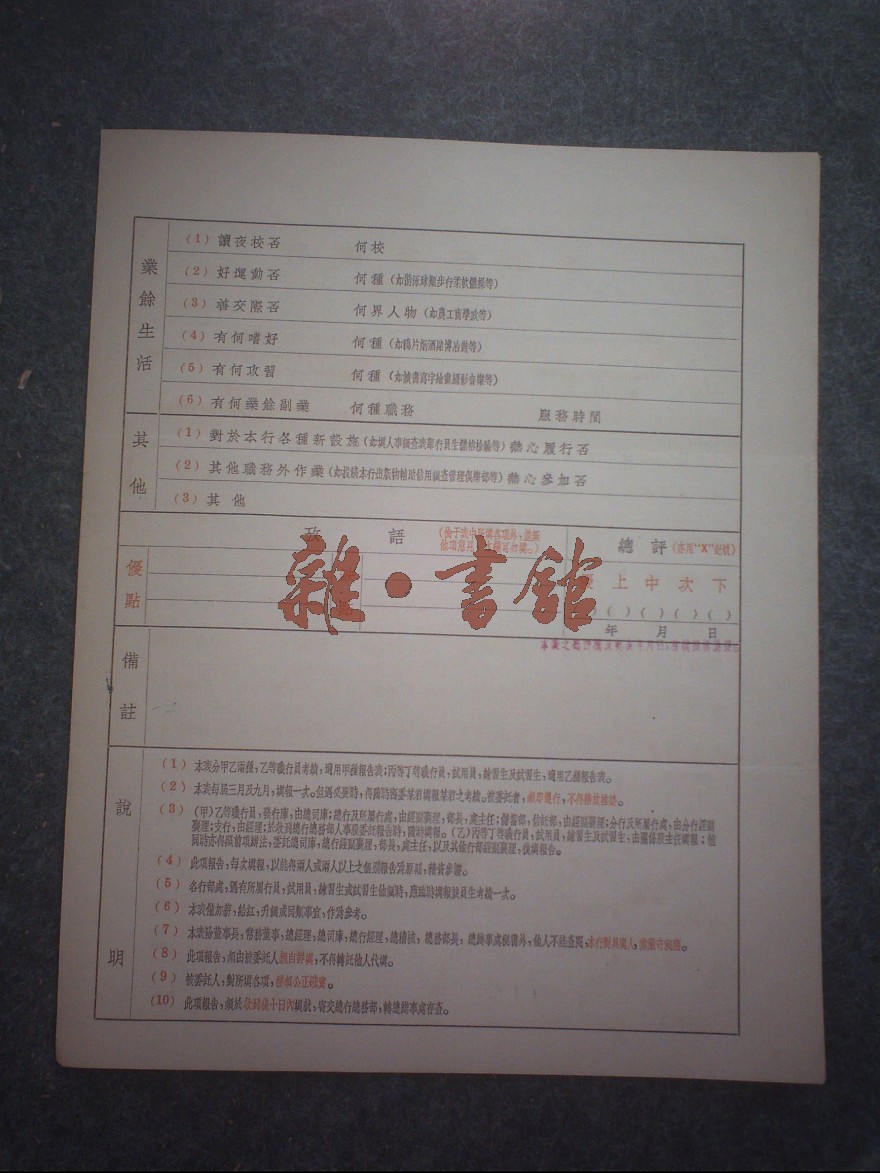 業餘生活
(1) 讀夜校否 何校
(2) 好運動否 何種 (如游泳球類步行柔軟體操等)
(3) 善交際否 何界人物 (如農工商學政等)
(4) 有何嗜好 何種 (如鴉片烟酒賭博冶遊等)
(5) 有何攻習 何種 (如讀書寫字繪畫攝影音樂等)
(6) 有何業餘副業 何種職務 服務時間
其他
(1) 對於本行各種新設施 (如填人事調查表舉行員生體格檢驗等) 熱心履行否
(2) 其他職務外作業 (如投稿本行出版物輔助信用調查管理俱樂部等) 熱心參加否
(3) 其他
語
總評 (亦用“X”記號)
上 中 次 下
( ) ( ) ( ) ( )
年 月 日
優點
雜·書館
備註
說明
(1) 本表分甲乙兩種,乙等職行員考績,適用甲種報告表;丙等丁等職行員,試用員,練習生及試習生,適用乙種報告表。
(2) 本表每屆三月及九月,填報一次。但遇必要時,得隨時函委某君填報某君之考績。被委託者,
(3) (甲)乙等職行員,發行庫,由總司庫;總行及所屬行處,由經副襄理,部長,處主任;儲蓄部,信託部,由經副襄理;分行及所屬行處,由分行經副
襄理;支行,由經理;於收到總行總務部人事股委託報告時,隨時填報。(乙)丙等丁等職行員,試用員,練習生及試習生,由
(4) 此項報告,每次填報,以能得兩人或兩人以上之個別報告為原則,藉資參證。
(5) 各行部處,遇有所屬行員,試用員,練習生或試習生他調時,應臨時填報該員生考績一次。
(6) 本表備加薪,給紅,升調或同類事宜,作為參考。
(7) 本表除董事長,常務董事,總經理,總司庫,總行經理,總稽核,總務部長,總辦事處秘書外,他人不能查閱,本行對填報人,當嚴守秘密。
(8) 此項報告,須由被委託人親自詳填,不得轉託他人代填。
(9) 被委託人,對所填各項,務須公正確實。
(10) 此項報告,須於收到後十日內填就,寄交總行總務部,轉總辦事處存查。